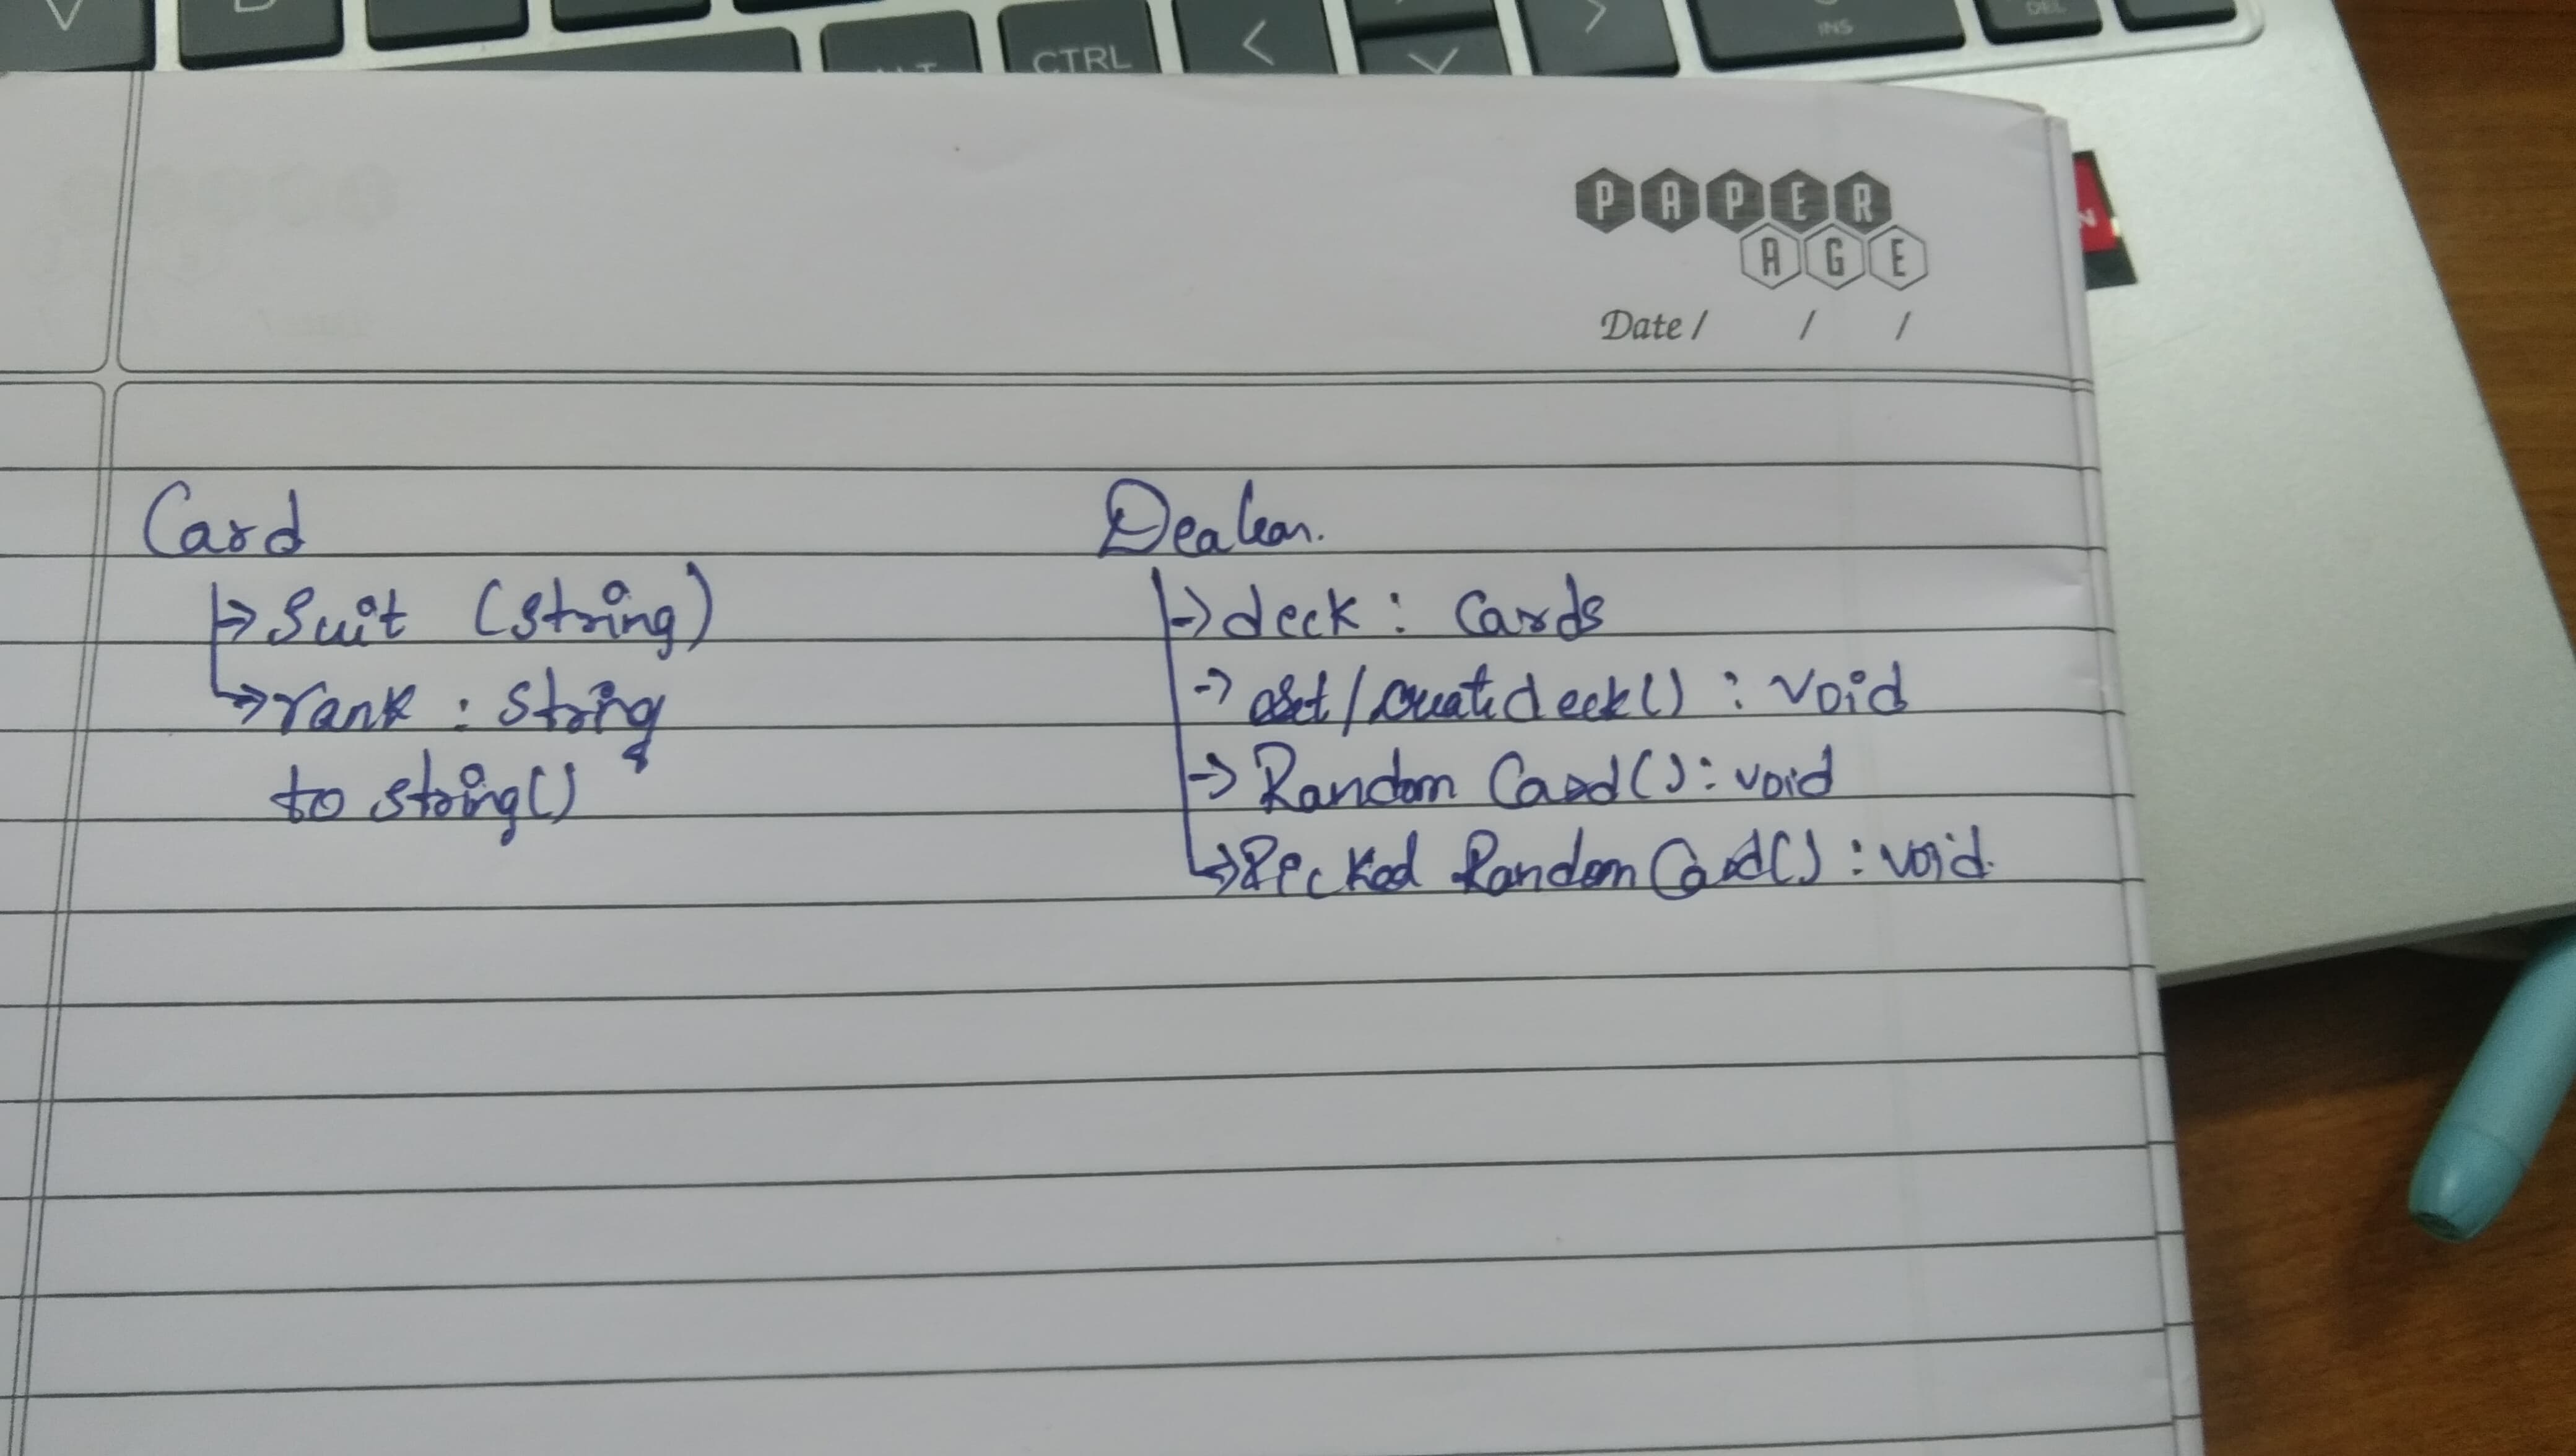 CTRL
INS
DEL
PAPER
AGE
Date / / /
Card
Suit (string)
rank : string
to string()
Dealer.
deck : Cards
/ createdeck() : void
Random Card() : void
Picked Random Card() : void.